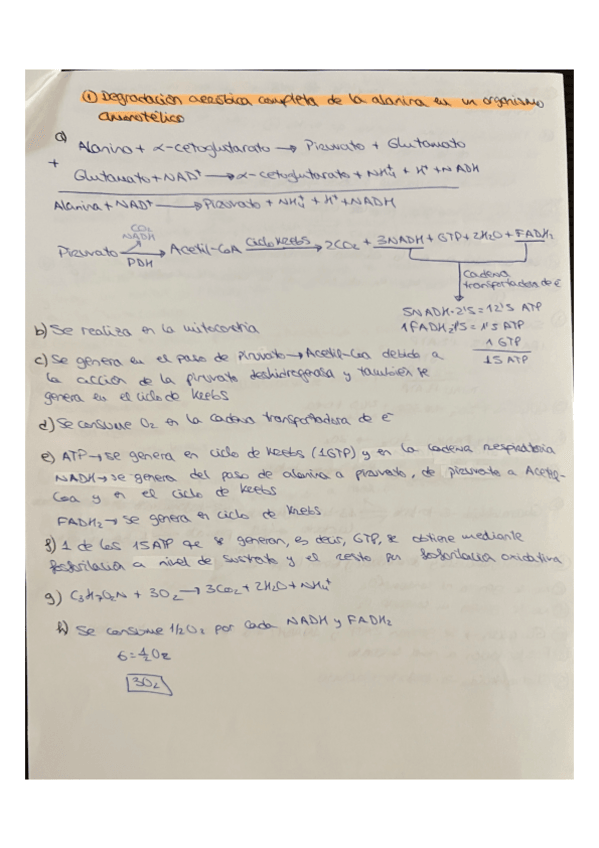 ① Degradación aeróbica completa de la alanina en un organismo
amonotélico
a) Alanina + α-cetoglutarato → Piruvato + Glutamato
+
Glutamato + NAD⁺ → α-cetoglutarato + NH₄⁺ + H⁺ + NADH
Alanina + NAD⁺ → Piruvato + NH₄⁺ + H⁺ + NADH
CO₂
NADH
Piruvato → Acetil-CoA Ciclo Krebs → 2CO₂ + 3NADH + GTP + 2H₂O + FADH₂
PDH
Cadena
transportadora de e⁻
5NADH·2'5 = 12'5 ATP
1FADH₂·1'5 = 1'5 ATP
1 GTP
15 ATP
b) Se realiza en la mitocondria
c) Se genera en el paso de piruvato → Acetil-CoA debido a
la acción de la piruvato deshidrogenasa y también se
genera en el ciclo de Krebs
d) Se consume O₂ en la cadena transportadora de e⁻
e) ATP → se genera en ciclo de Krebs (1GTP) y en la cadena respiratoria
NADH → se genera del paso de alanina a piruvato, de piruvato a Acetil-
CoA y en el ciclo de Krebs
FADH₂ → se genera en ciclo de Krebs
f) 1 de los 15 ATP que se generan, es decir, GTP, se obtiene mediante
fosforilación a nivel de sustrato y el resto por fosforilación oxidativa
g) C₃H₇O₂N + 3O₂ → 3CO₂ + 2H₂O + NH₄⁺
h) Se consume 1/2O₂ por cada NADH y FADH₂
3O₂